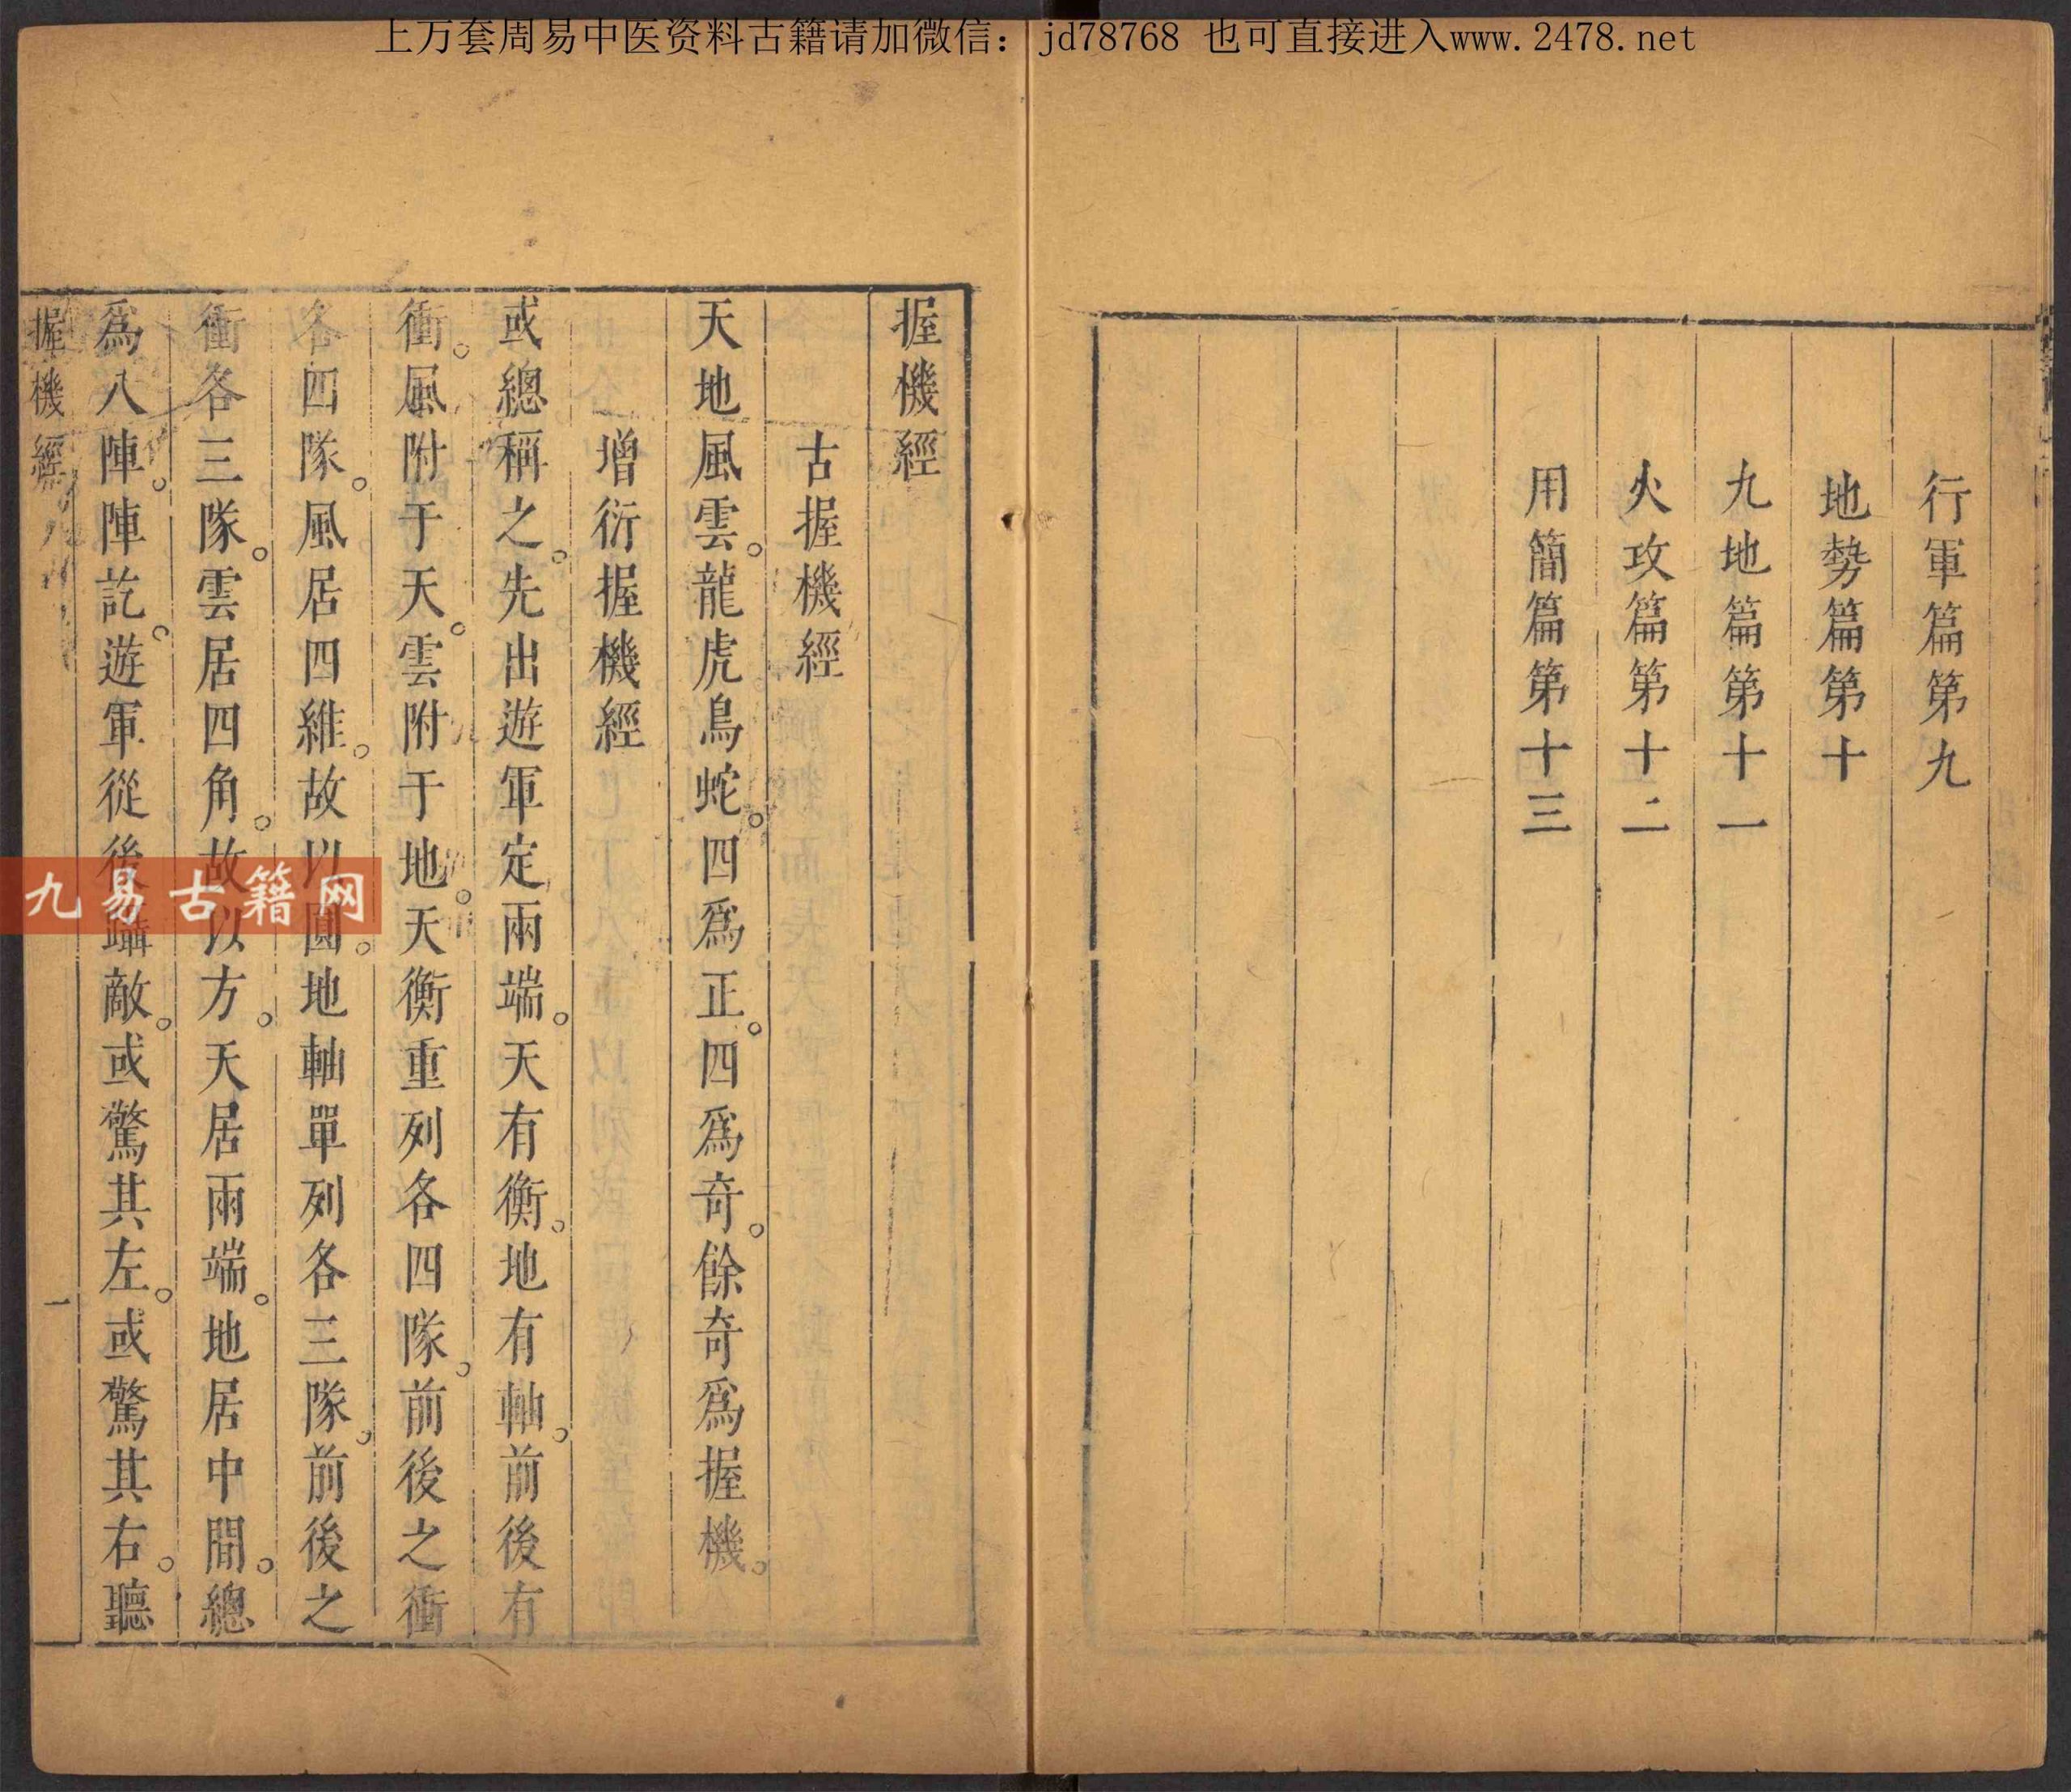 上万套周易中医资料古籍请加微信：jd78768 也可直接进入www.2478.net
行軍篇第九
地勢篇第十
九地篇第十一
火攻篇第十二
用簡篇第十三
握機經
古握機經
天地風雲。龍虎鳥蛇。四爲正。四爲奇。餘奇爲握機。
增衍握機經
或總稱之。先出遊軍定兩端。天有衡。地有軸。前後有
衝。風附于天。雲附于地。天衡重列各四隊。前後之衝
各四隊。風居四維。故以圓。地軸單列各三隊。前後之
衝各三隊。雲居四角。故以方。天居兩端。地居中間。總
爲八陣。陣訖。遊軍從後躡敵。或驚其左。或驚其右。聽
握機經
一
九易古籍网